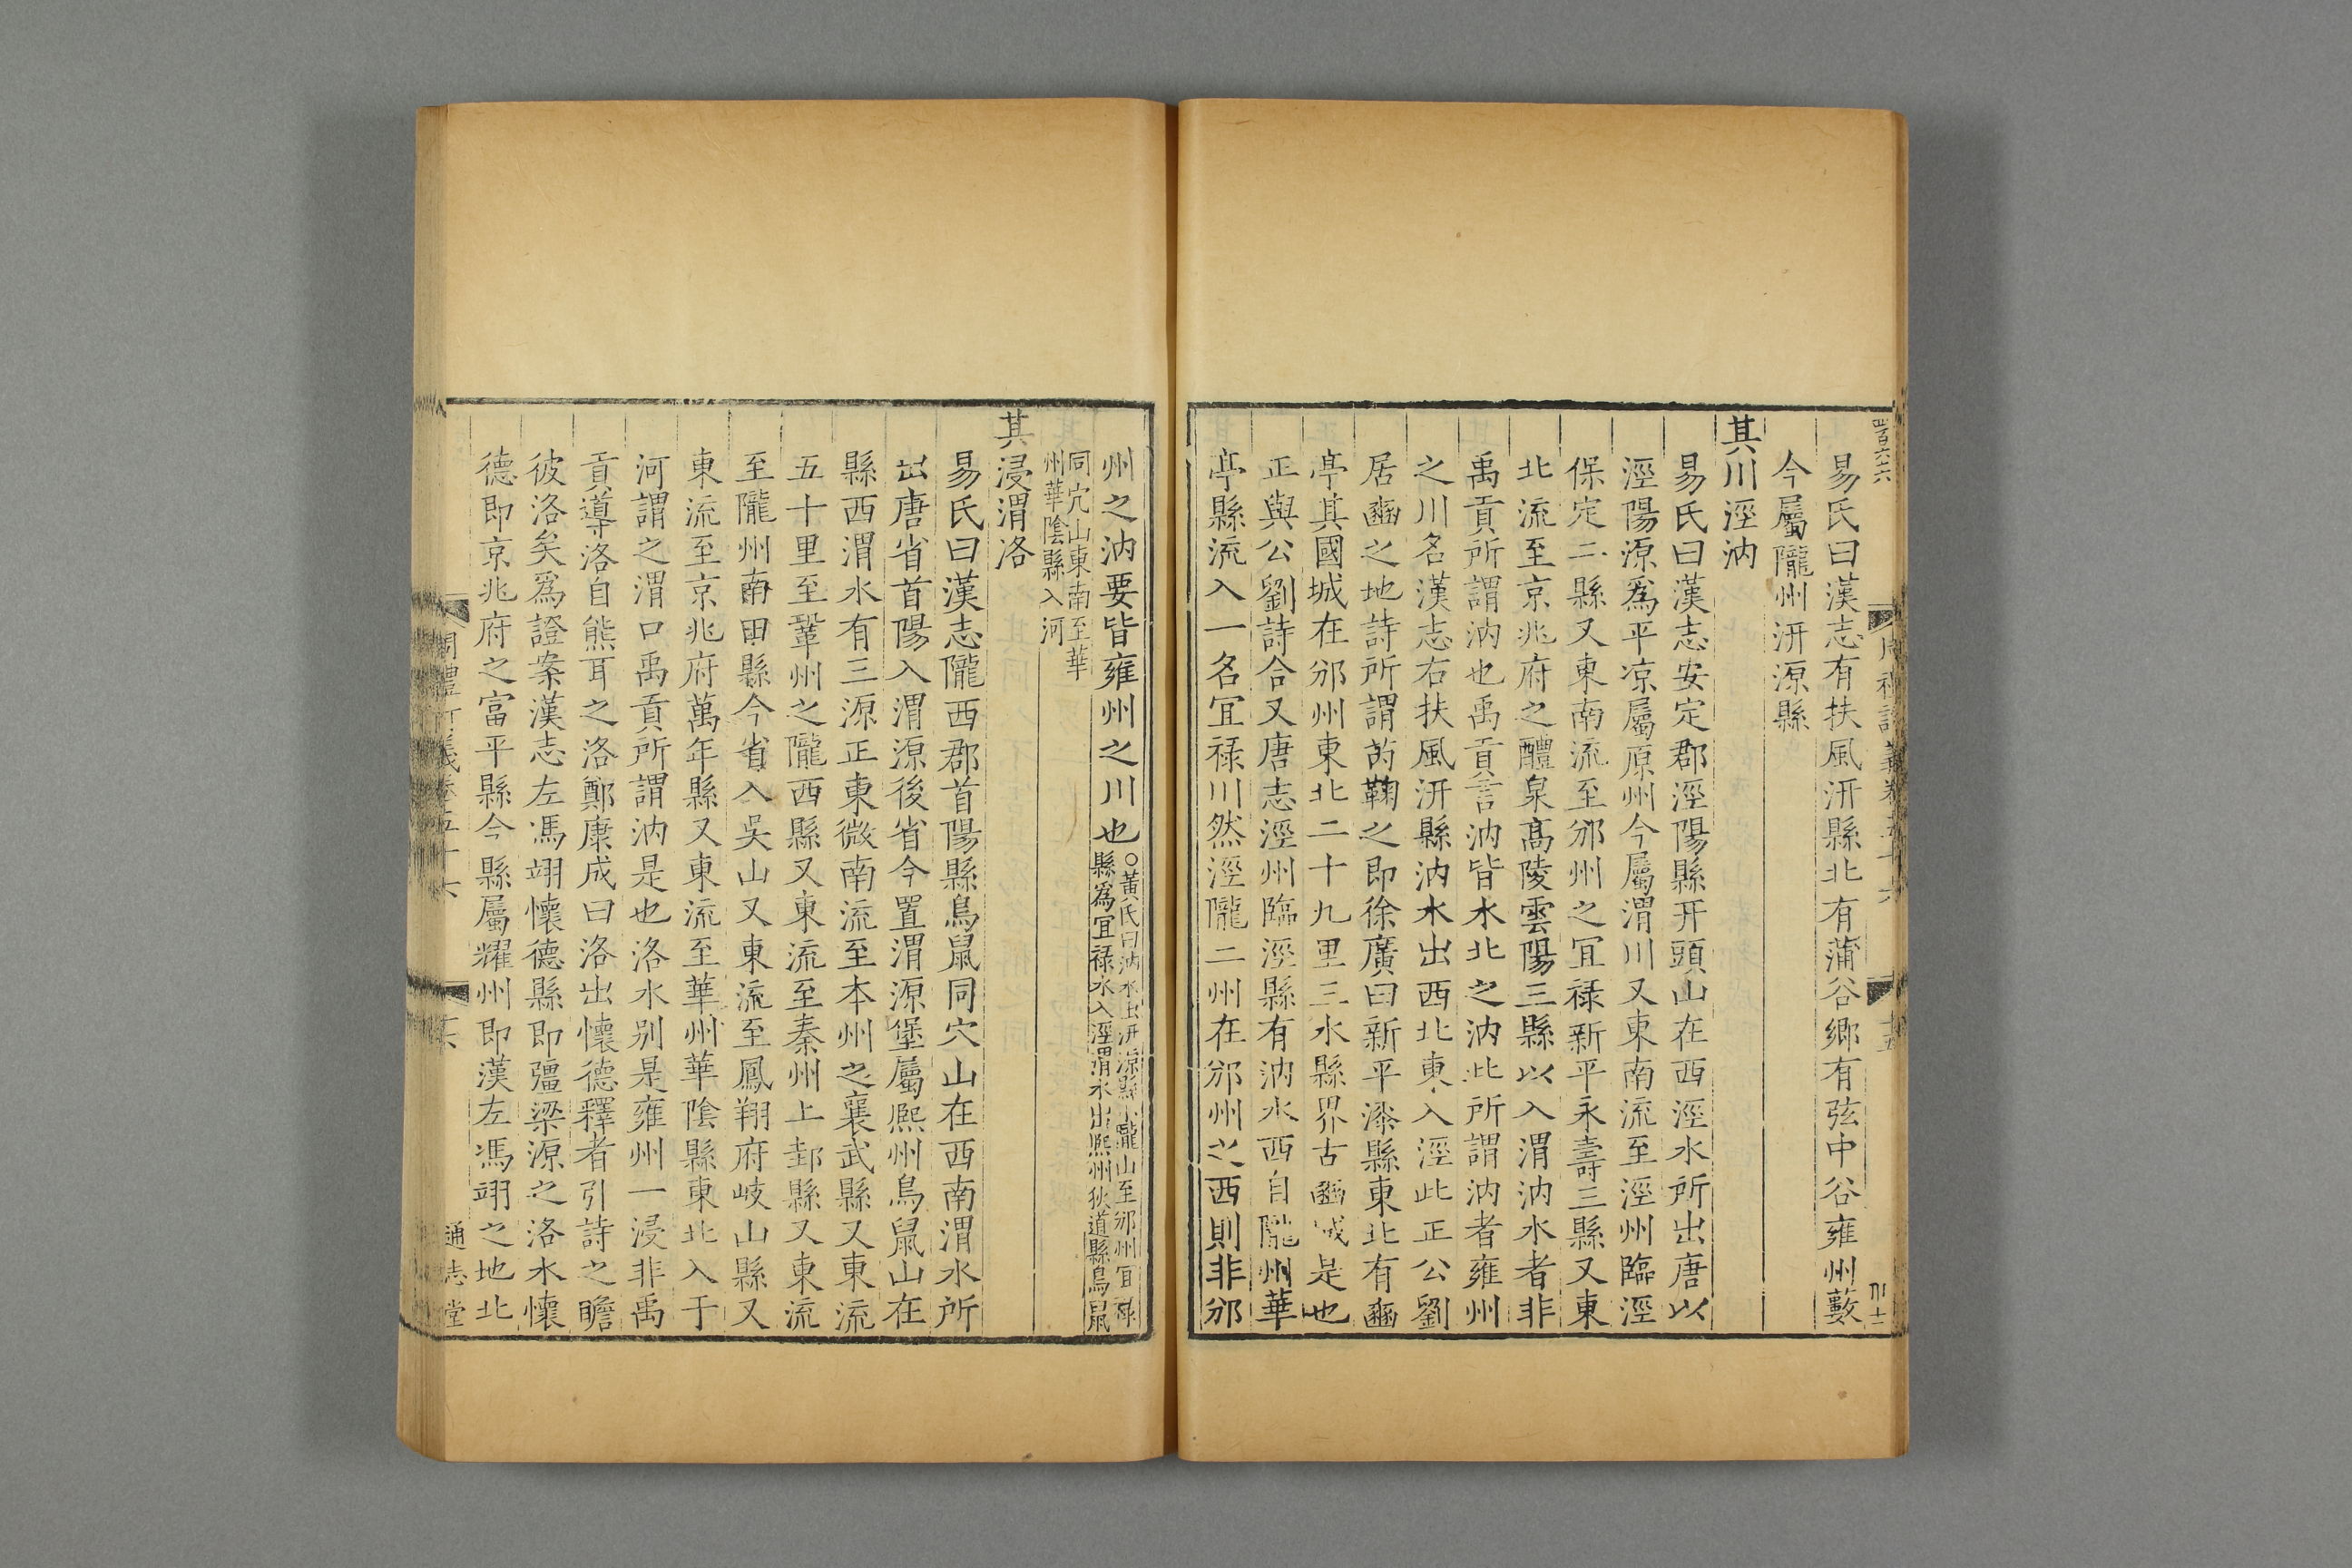 易氏曰漢志有扶風汧縣北有蒲谷鄉有弦中谷雍州藪
今屬隴州汧源縣
其川涇汭
易氏曰漢志安定郡涇陽縣幵頭山在西涇水所出唐以
涇陽源爲平凉屬原州今屬渭川又東南流至涇州臨涇
保定二縣又東南流至邠州之宜禄新平永壽三縣又東
北流至京兆府之醴泉髙陵雲陽三縣以入渭汭水者非
禹貢所謂汭也禹貢言汭皆水北之汭此所謂汭者雍州
之川名漢志右扶風汧縣汭水出西北東入涇此正公劉
居豳之地詩所謂芮鞫之即徐廣曰新平漆縣東北有豳
亭其國城在邠州東北二十九里三水縣界古豳城是也
正與公劉詩合又唐志涇州臨涇縣有汭水西自隴州華
亭縣流入一名宜禄川然涇隴二州在邠州之西則非邠
州之汭要皆雍州之川也○黃氏曰汭水出汧源縣小隴山至邠州宜祿
縣爲宜祿水入涇渭水出熈州狄道縣鳥鼠
同穴山東南至華
州華隂縣入河
其浸渭洛
易氏曰漢志隴西郡首陽縣鳥鼠同穴山在西南渭水所
出唐省首陽入渭源後省今置渭源堡屬熈州鳥鼠山在
縣西渭水有三源正東微南流至本州之襄武縣又東流
五十里至鞏州之隴西縣又東流至秦州上邽縣又東流
至隴州南田縣今省入吳山又東流至鳳翔府岐山縣又
東流至京兆府萬年縣又東流至華州華隂縣東北入于
河謂之渭口禹貢所謂汭是也洛水别是雍州一浸非禹
貢導洛自熊耳之洛鄭康成曰洛出懷德釋者引詩之瞻
彼洛矣爲證案漢志左馮翊懷德縣即彊梁源之洛水懷
德即京兆府之富平縣今縣屬耀州即漢左馮翊之地北
通志堂